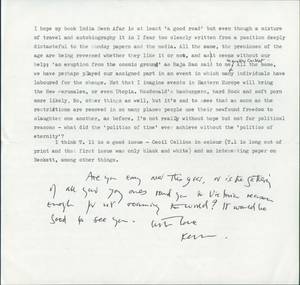 I hope my book India Seen Afar is at least 'a good read' but even though a mixture
of travel and autobiography it is I fear too clearly written from a position deeply
distasteful to the Sunday papers and the media. All the same, the premisses of the
age are being reversed whether they like it or not, and all seems without our
help 'an eruption from the cosmic ground' as Raja Rao said to me. All the same,
we have perhaps played our assigned part in an event in which many individuals have
laboured for the change. Not that I imagine events in Eastern Europe will bring
the New Jerusalem, or even Utopia. MacDonald's hamburgers, hard Rock and soft porn
more likely. So, other things as well, but it's sad to see that as soon as the
restrictions are removed in so many places people use their newfound freedom to
slaughter one another, as before. I'm not really without hope but not for political
reasons - what did the 'politics of time' ever achieve without the 'politics of
eternity'?
I think T. 11 is a good issue - Cecil Collins in colour (T.1 is long out of
print and that first issue was only black and white) and an interesting paper on
Beckett, among other things.
Are you
of all
enough for not
good to see you. With love